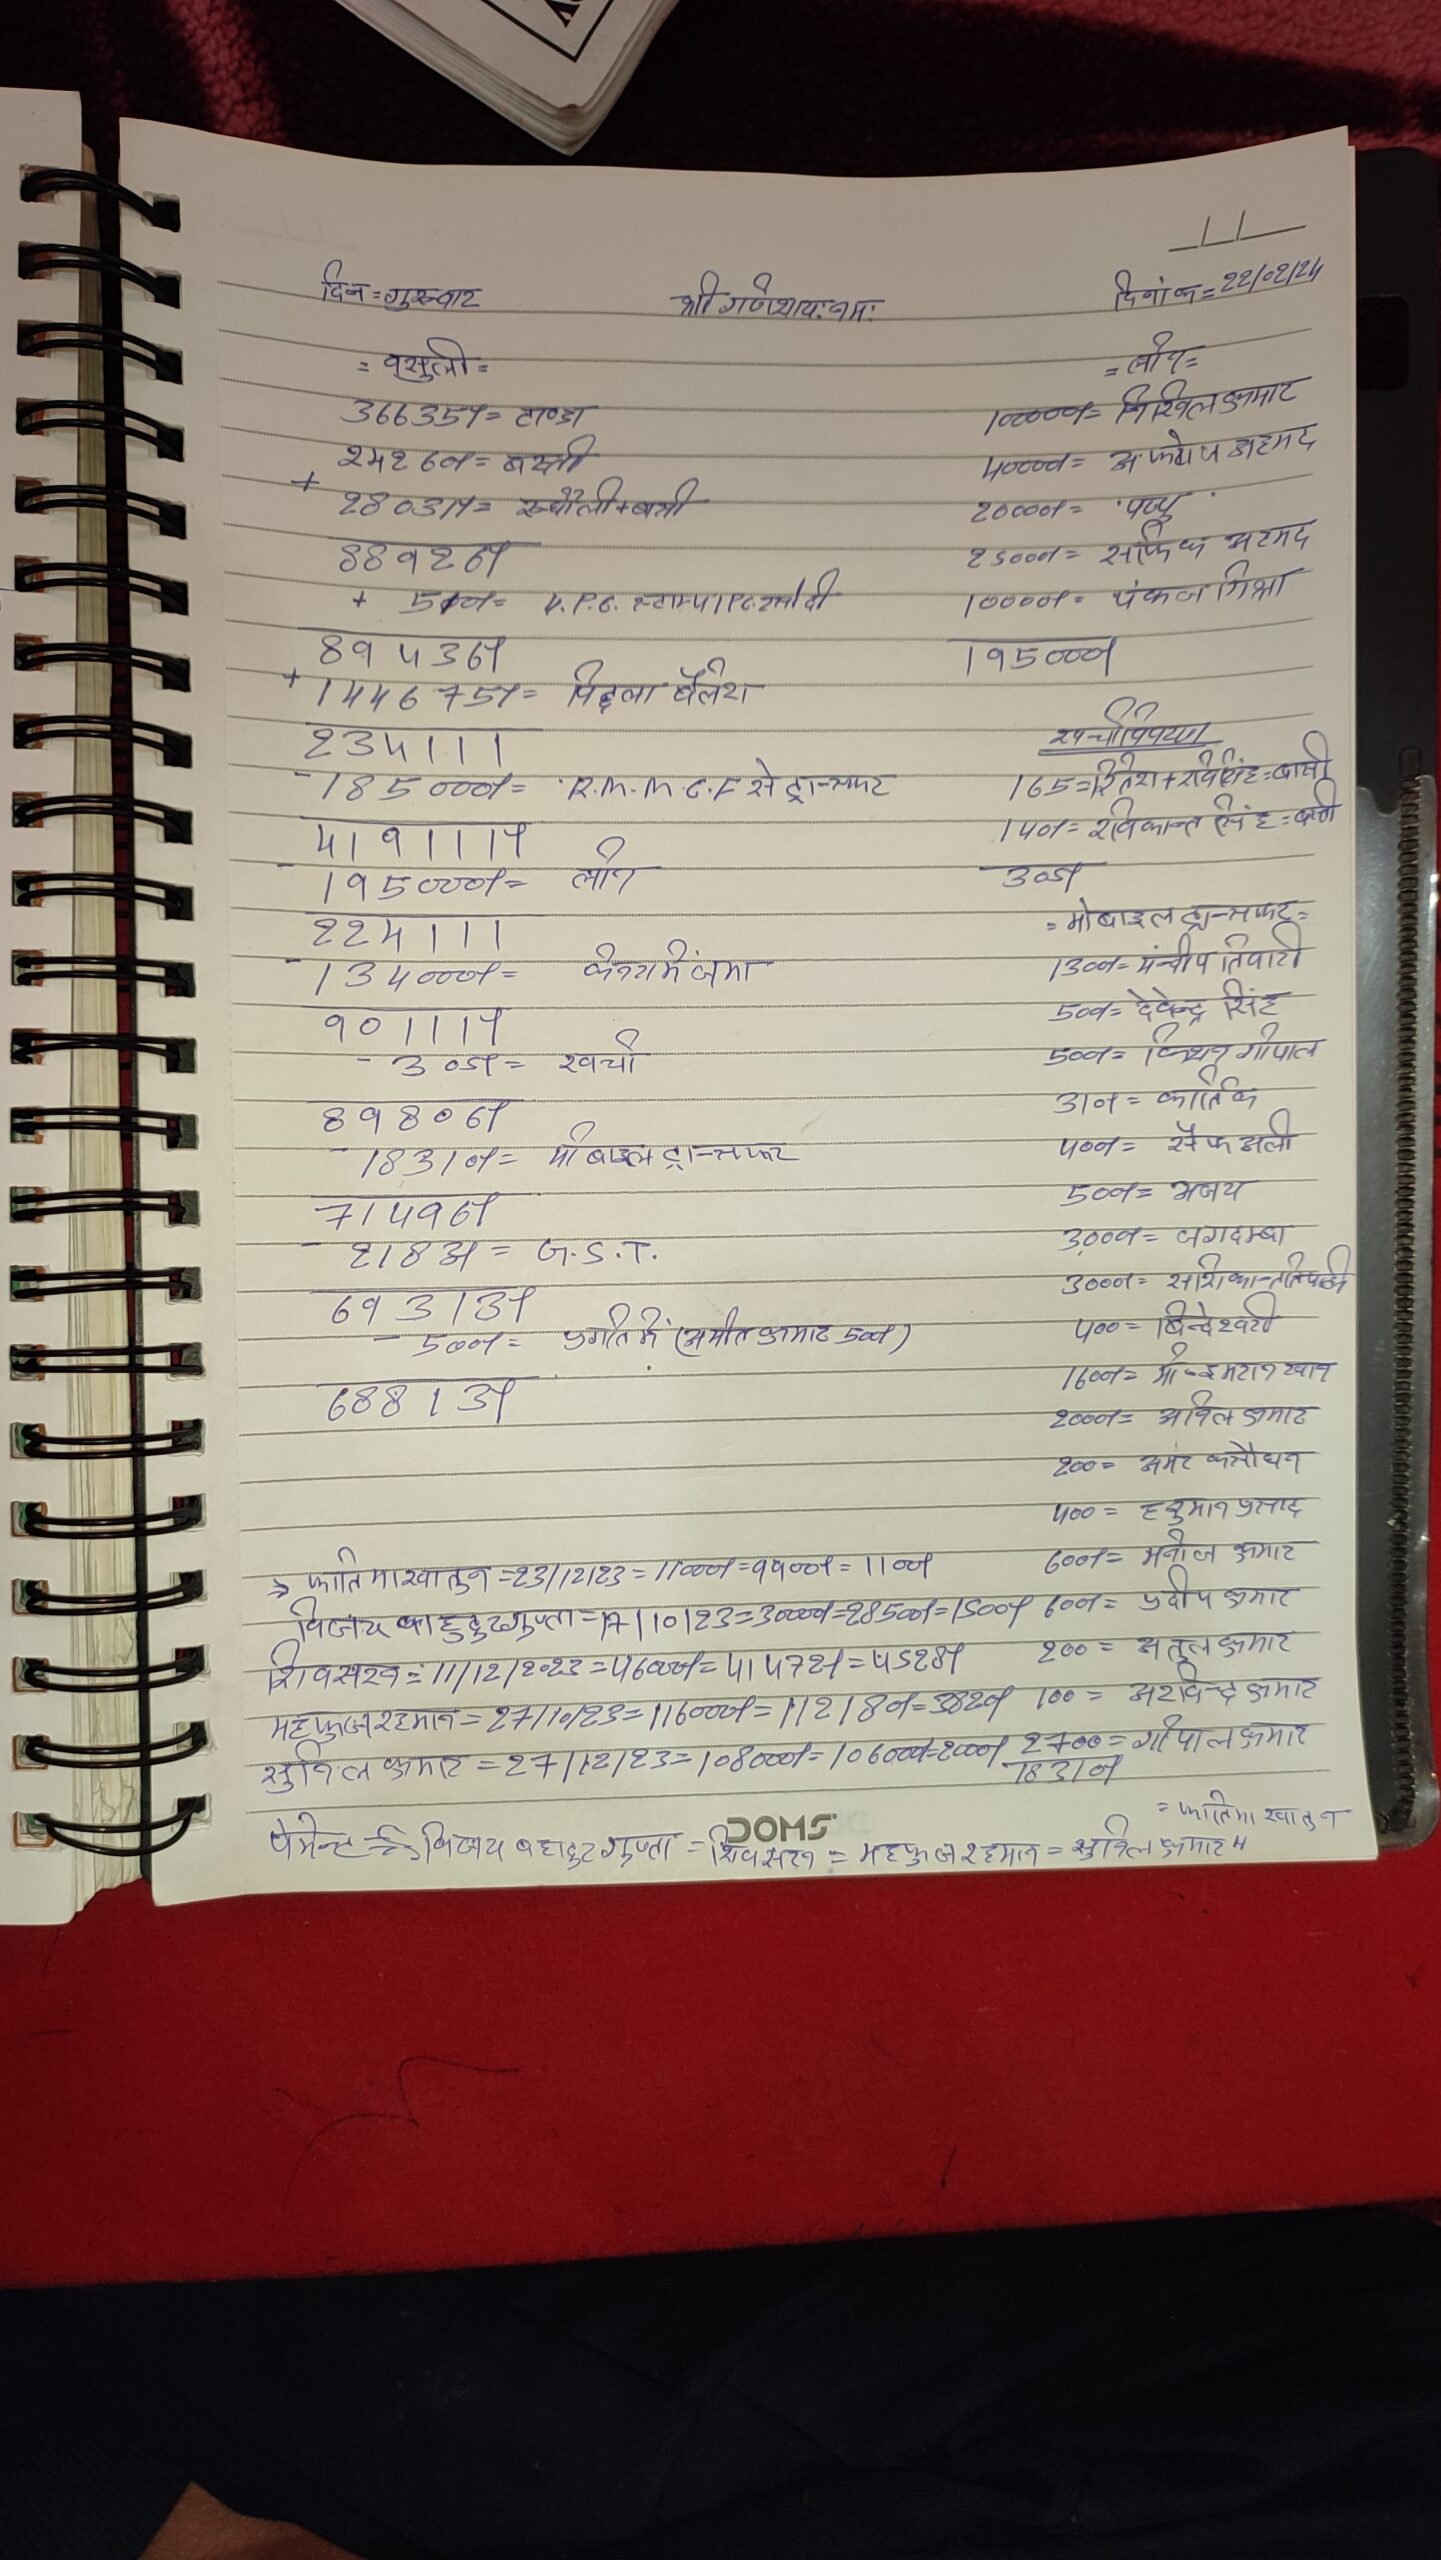 दिन=गुरुवार श्री गणेशाय:नम: दिनांक=22/02/24
=वसुली=
36635/= टाण्डा
24260/= बस्ती
+ 28031/=
88926/
+ 510/=
89436/
+ 144675/= पिछला बैलेंश
234111
185000/= R.M.M.C.F से ट्रान्सफर
419111/
- 195000/= लोन
224111
- 134000/= बैंक में जमा
90111/
- 305/= खर्चा
89806/
- 18310/= मोबाइल ट्रान्सफर
71496/
- 2183/= G.S.T.
69313/
- 500/= प्रगति में (अमीत कुमार 500/)
68813/
=लोन=
100000/= निखिल कुमार
40000/= अफरोज अहमद
20000/= पप्पु
25000/= सफिक अहमद
10000/= पंकज मिश्रा
195000/
खर्चा विवरण
165=रितेश+रवि सिंह=बासी
140/=रविकान्त सिंह=बस्ती
305/
=मोबाइल ट्रान्सफर=
1300/= संदीप तिवारी
500/= देवेन्द्र सिंह
500/= किशन गोपाल
310/= कार्तिक
400/= सैफ अली
500/= अजय
3000/= जगदम्बा
3000/=
400= बिन्देश्वरी
1600/= मो-इमरान खान
2000/= अनिल कुमार
200= अमर कसौधन
400= हनुमान प्रसाद
600/= मनोज कुमार
600/= प्रदीप कुमार
200= अतुल कुमार
100= अरविन्द कुमार
2700=गोपाल कुमार
18310/
→ फातिमा खातुन=23/12/23=11000/=9900/=1100/
विजय बहादुर गुप्ता=17/10/23=30000/=28500/=1500/
शिवसरन=11/12/2023=46000/=41472/=4528/
महफुज रहमान=27/10/23=116000/=112180/=3820/
सुनिल कुमार=27/12/23=108000/=106000/=2000/
=फातिमा खातुन
पेमेन्ट= विजय बहादुर गुप्ता=शिवसरन=महफुज रहमान=सुनिल कुमार"
DOMS